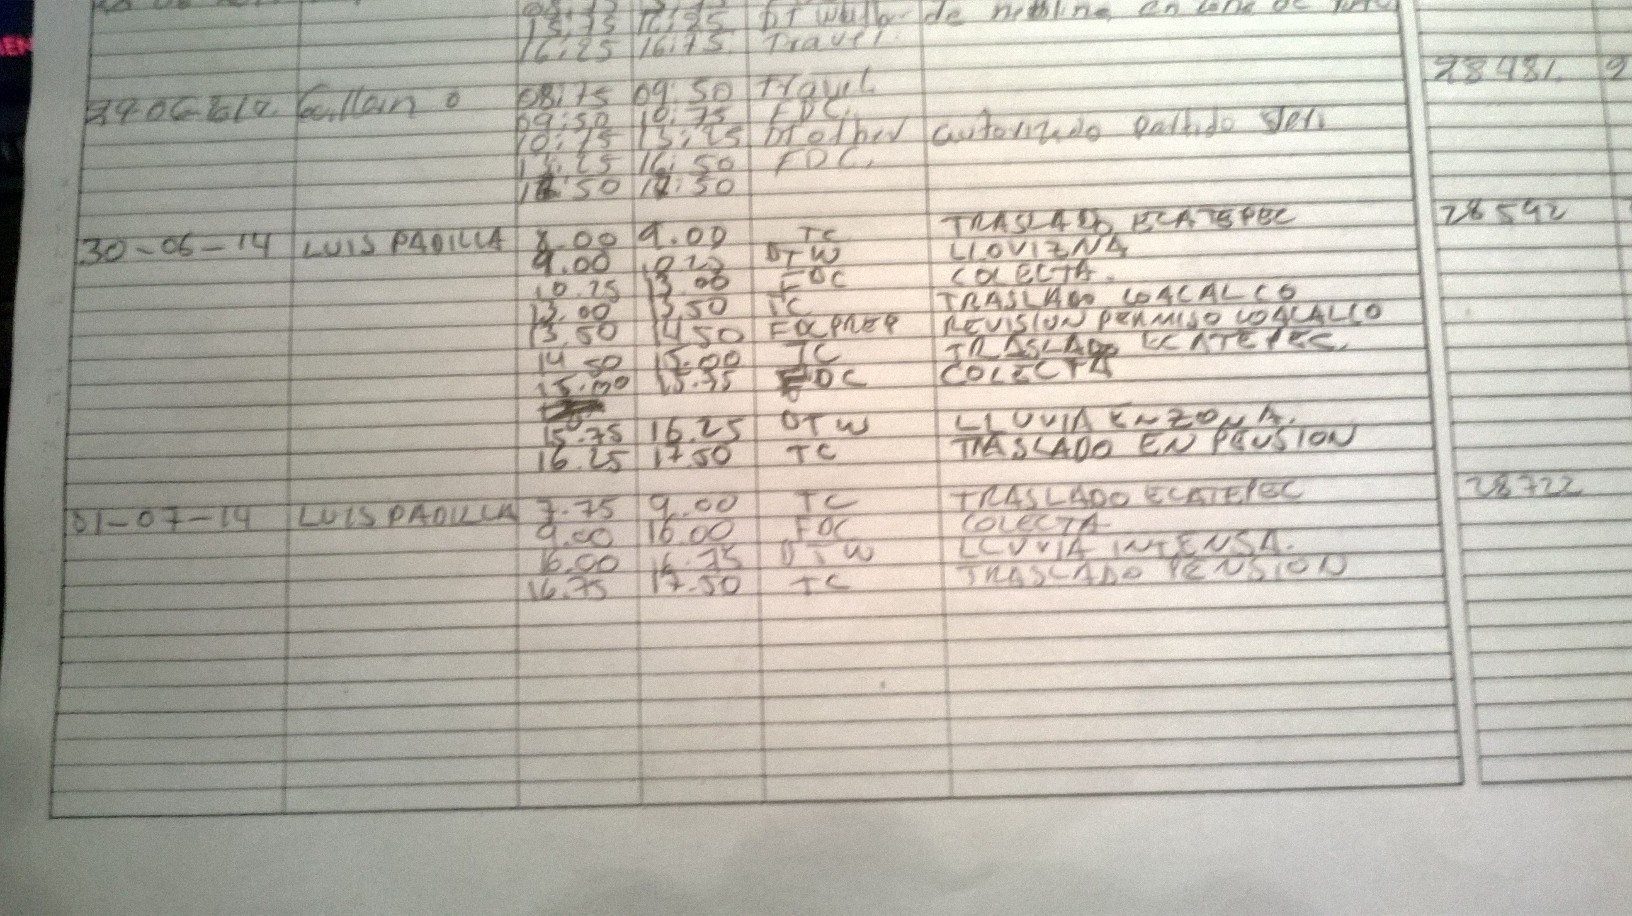 15:75 16:25 DT de neblina en zona de
16:25 16:75 Travel.
28481. 9
29-06-2014. Guillermo O 08:75 09:50 Travel
09:50 10:75 FDC.
10:75 13:25 Dt other autorizado partido
13:25 16:50 FDC.
16:50 17:50
28592
30-06-14 LUIS PADILLA 8.00 9.00 TC TRASLADO ECATEPEC
9.00 DTW LLOVIZNA
10.75 13.00 FDC COLECTA.
13.00 13.50 TC TRASLADO COACALCO
13.50 14.50 REVISION PERMISO COACALCO
14.50 15.00 TC TRASLADO ECATEPEC.
15.00 15.75 FDC COLECTA
15.75 16.25 DTW LLUVIA EN ZONA.
16.25 17.50 TC TRASLADO EN PENSION
28722
01-07-14 LUIS PADILLA 7.75 9.00 TC TRASLADO ECATEPEC
9.00 16.00 FDC COLECTA
16.00 16.75 DTW LLUVIA INTENSA.
16.75 17.50 TC TRASLADO PENSION